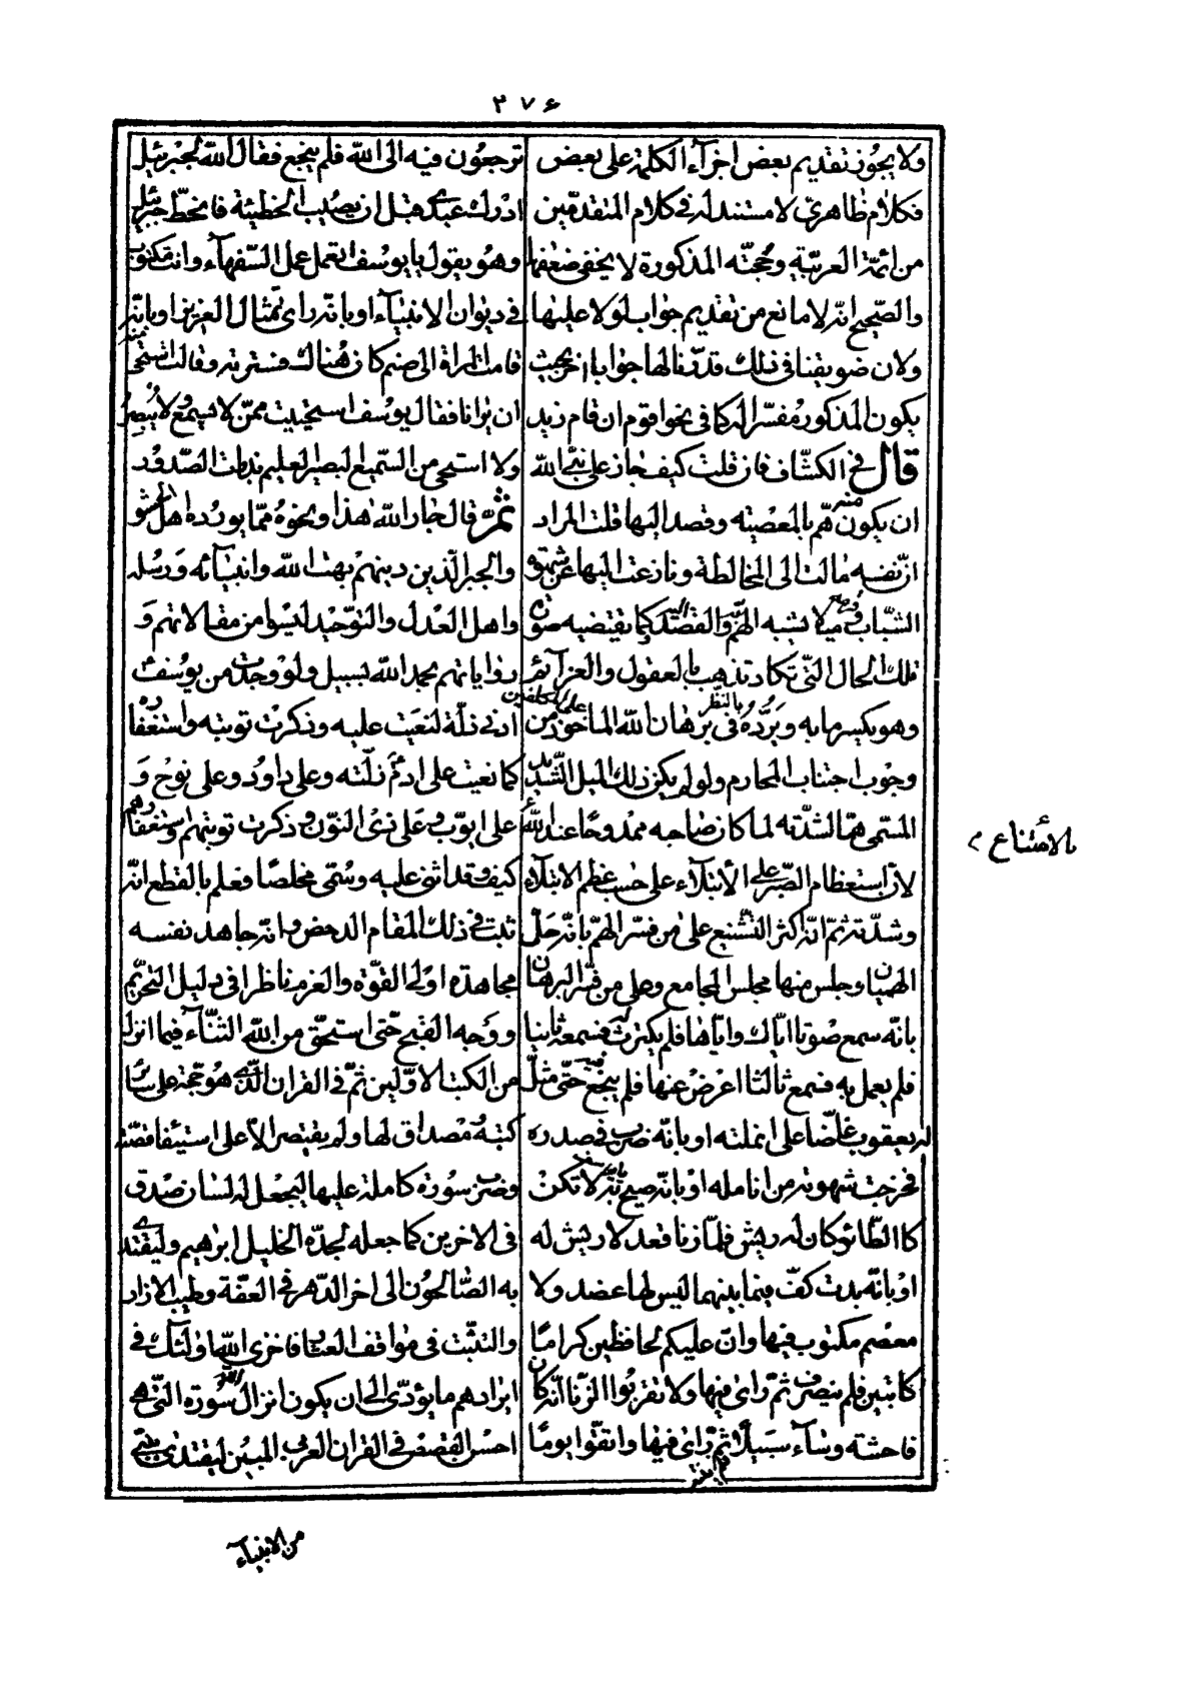 ۲۷۶
ولا يجوز تقديم بعض اجزآء الكلمة على بعض
فكلام ظاهرىّ لا مستند له فى كلام المتقدّمين
من ائمّة العربيّة وحجّته المذكورة لا يخفى ضعفها
والصّحيح انّه لا مانع من تقديم جواب لولا عليها
ولان ضويقنا فى ذلك قدّرنا لها جوابا اخر بحيث
يكون المذكور مفسّرا له كما فى نحو اقوم ان قام زيد
قال فى الكشّاف فان قلت كيف جاز على نبىّ الله
ان يكون منه همّ بالمعصية وقصد اليها قلت المراد
انّ نفسه مالت الى المخالطة ونازعت اليها عن شهوة
الشّباب وقرمه ميلا يشبه الهمّ به والقصد اليه كما تقتضيه صورة
تلك الحال التّى تكاد تذهب بالعقول والعزآئم
وهو يكسر ما به ويردّه بالنّظر فى برهان الله الماخوذ على المكلفين من
وجوب اجتناب المحارم ولو لم يكن ذلك الميل الشّديد
المسمّى همّا لشدّته لما كان صاحبه ممدوحا عند الله
بالامتناع
لانّ استعظام الصّبر على الابتلآء على حسب عظم الابتلآء
وشدّته ثمّ انّه اكثر التّشنيع على من فسّر الهمّ بانّه حلّ
الهميان وجلس منها مجلس المجامع وعلى من فسّر البرهان
بانّه سمع صوتا ايّاك وايّاها فلم يكترث له فسمعه ثانيا
فلم يعمل به فسمع ثالثا اعرض عنها فلم ينجع فيه حتّى مثّل
له يعقوب عاضّا على انملته او بانّه ضرب فى صدره
فخرجت شهوته من انامله او بانّه صيح به يا يوسف لا تكن
كالطّائر كان له ريش فلمّا زنا قعد لا ريش له
او بانّه بدت كفّ فيما بينهما ليس لها عضد ولا
معصم مكتوب فيها وانّ عليكم لحافظين كراما
كاتبين فلم ينصرف ثمّ راى فيها ولا تقربوا الزّنا انّه كان
فاحشة وسآء سبيلا فلم ينته ثمّ راى فيها واتّقوا يوما
ترجعون فيه الى الله فلم ينجع فقال الله لجبرئيل
ادرك عبدى قبل ان يصيب الخطيئة فانحطّ جبرئيل
وهو يقول يا يوسف اتعمل عمل السّفهآء وانت مكتوب
فى ديوان الانبيآء او بانّه راى تمثال العزيز او بانّه
قامت المراة الى صنم كان هناك فسترته وقالت استحيى منه
ان يرانا فقال يوسف استحييت ممّن لا يسمع لا يبصر
ولا استحى من السّميع البصير العليم بذات الصّدور
ثمّ قال جار الله هذا ونحوه ممّا يورده اهل الحشو
والجبر الّذين دينهم بهت الله وانبيآئه ورسله
واهل العدل والتّوحيد ليسوا من مقالاتهم و
رواياتهم بحمد الله بسبيل ولو وجدت من يوسف
ادنى زلّة لنعيت عليه وذكرت توبته واستغفاره
كما نعيت على ادم زلّته وعلى داود وعلى نوح و
على ايّوب وعلى ذى النّون وذكرت توبتهم واستغفارهم
كيف وقد اثنى عليه وسمّى مخلصا فعلم بالقطع انّه
ثبت فى ذلك المقام الدحض وانّه جاهد نفسه
مجاهدة اولى القوّة والعزم ناظرا فى دليل التّحريم
ووجه القبح حتّى استحقّ من الله الثّنآء فيما انزل
من الكتب الاوّلين ثمّ فى القران الّذى هو حجّة على سائر
كتبه ومصداق لها ولم يقتصر الّا على استيفآء قصّته
وضرب سورة كاملة عليها ليجعل له لسان صدق
فى الاخرين كما جعله لجدّه الخليل ابرهيم وليقتدى
به الصّالحون الى اخر الدّهر فى العفّة وطيب الازار
والتثبّت فى مواقف العثار فاخزى الله اولئك فى
ايرادهم ما يؤدّى الى ان يكون انزال الله السّورة التّى هى
احسن القصص فى القران العربى المبين ليقتدى بنبىّ
من الانبيآء